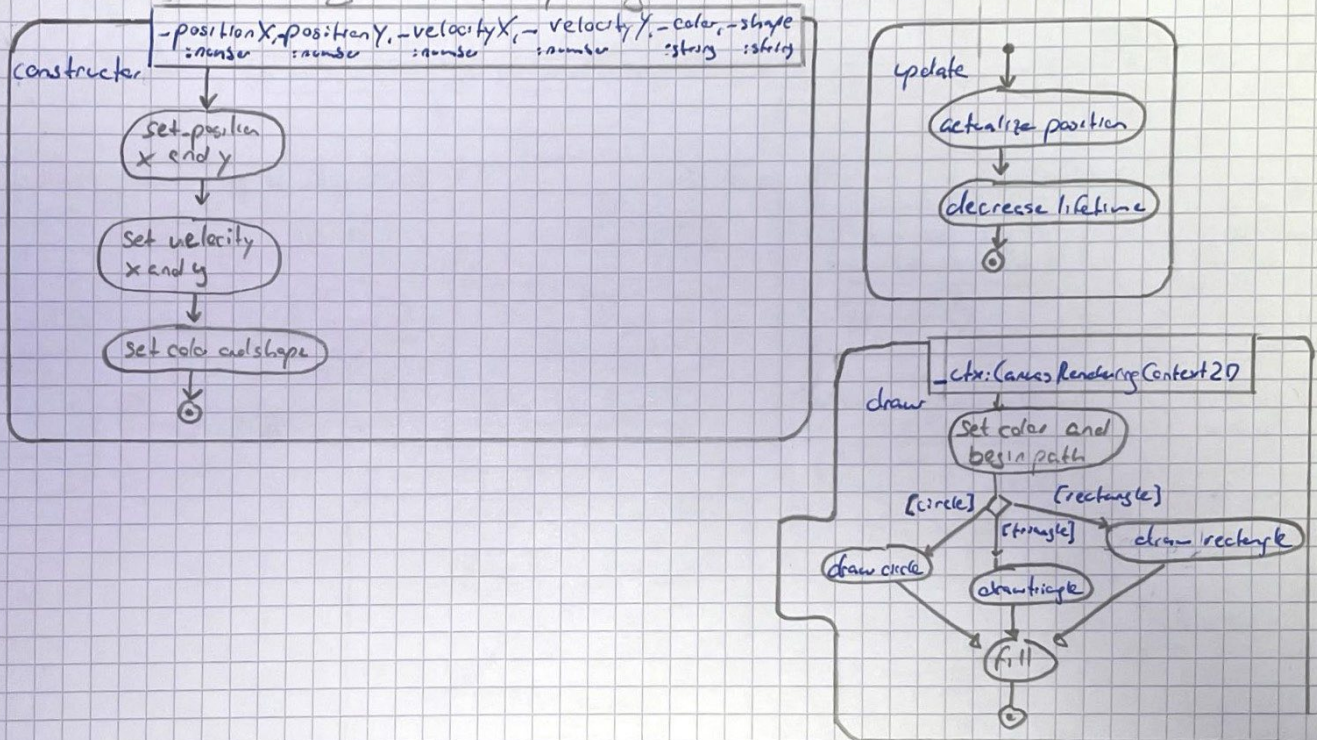 -positionX,-positionY,-velocityX,-velocityY,-color,-shape
:number :number :number :number :string :string
constructor
set position
x and y
set velocity
x and y
set color and shape
update
actualize position
decrease lifetime
_ctx:CanvasRenderingContext2D
draw
set color and
begin path
[circle] [rectangle]
[triangle]
draw rectangle
draw circle
draw triangle
fill